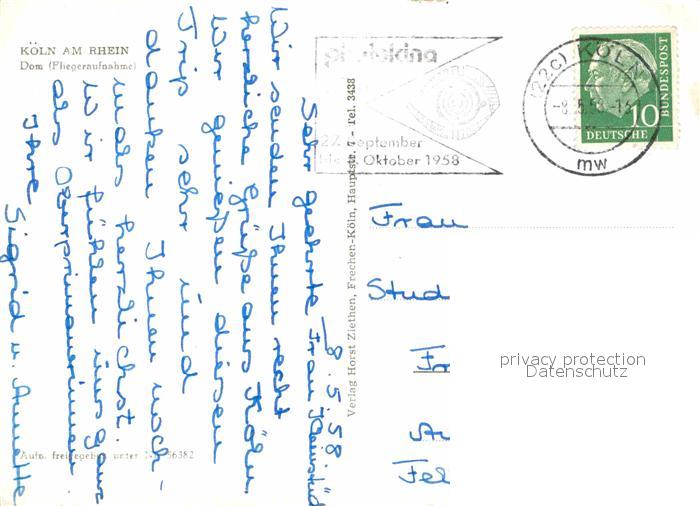 KÖLN AM RHEIN
Dom (Fliegeraufnahme)
8.5.58.
Sehr geehrte Frau
Wir senden Ihnen recht
herzliche Grüße aus Köln.
Wir genießen diesen
Trip sehr und
danken Ihnen noch-
mals herzlichst.
Wir fühlen uns ganz
als Oberprimanerinnen.
Ihre
Sigrid u. Annette
Aufn. freigegeben unter 56382
Verlag Horst Ziethen, Frechen-Köln, Hauptstr. - Tel. 3438
photokina
27. September
bis Oktober 1958
(22c) KÖLN
mw
10
DEUTSCHE
BUNDESPOST
Frau
Stud
Fr
Fel
privacy protection
Datenschutz